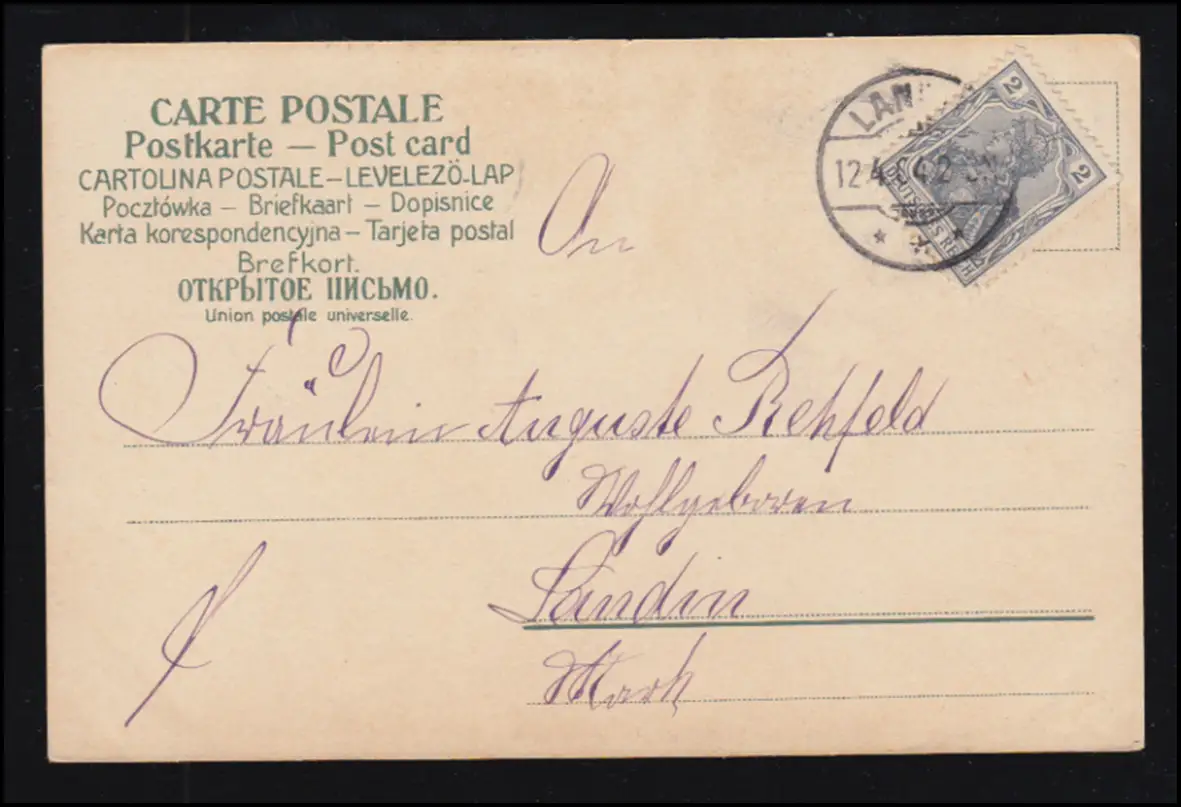 CARTE POSTALE
Postkarte — Post card
CARTOLINA POSTALE – LEVELEZÖ-LAP
Pocztówka – Briefkaart – Dopisnice
Karta korespondencyjna – Tarjeta postal
Brefkort.
ОТКРЫТОЕ ПИСЬМО.
Union postale universelle.
LAN
12.4. 04. 2
2
2
DEUTSCHES REICH
2
An
Fräulein Auguste Rehfeld
Wohlgeboren
Landin
Mark